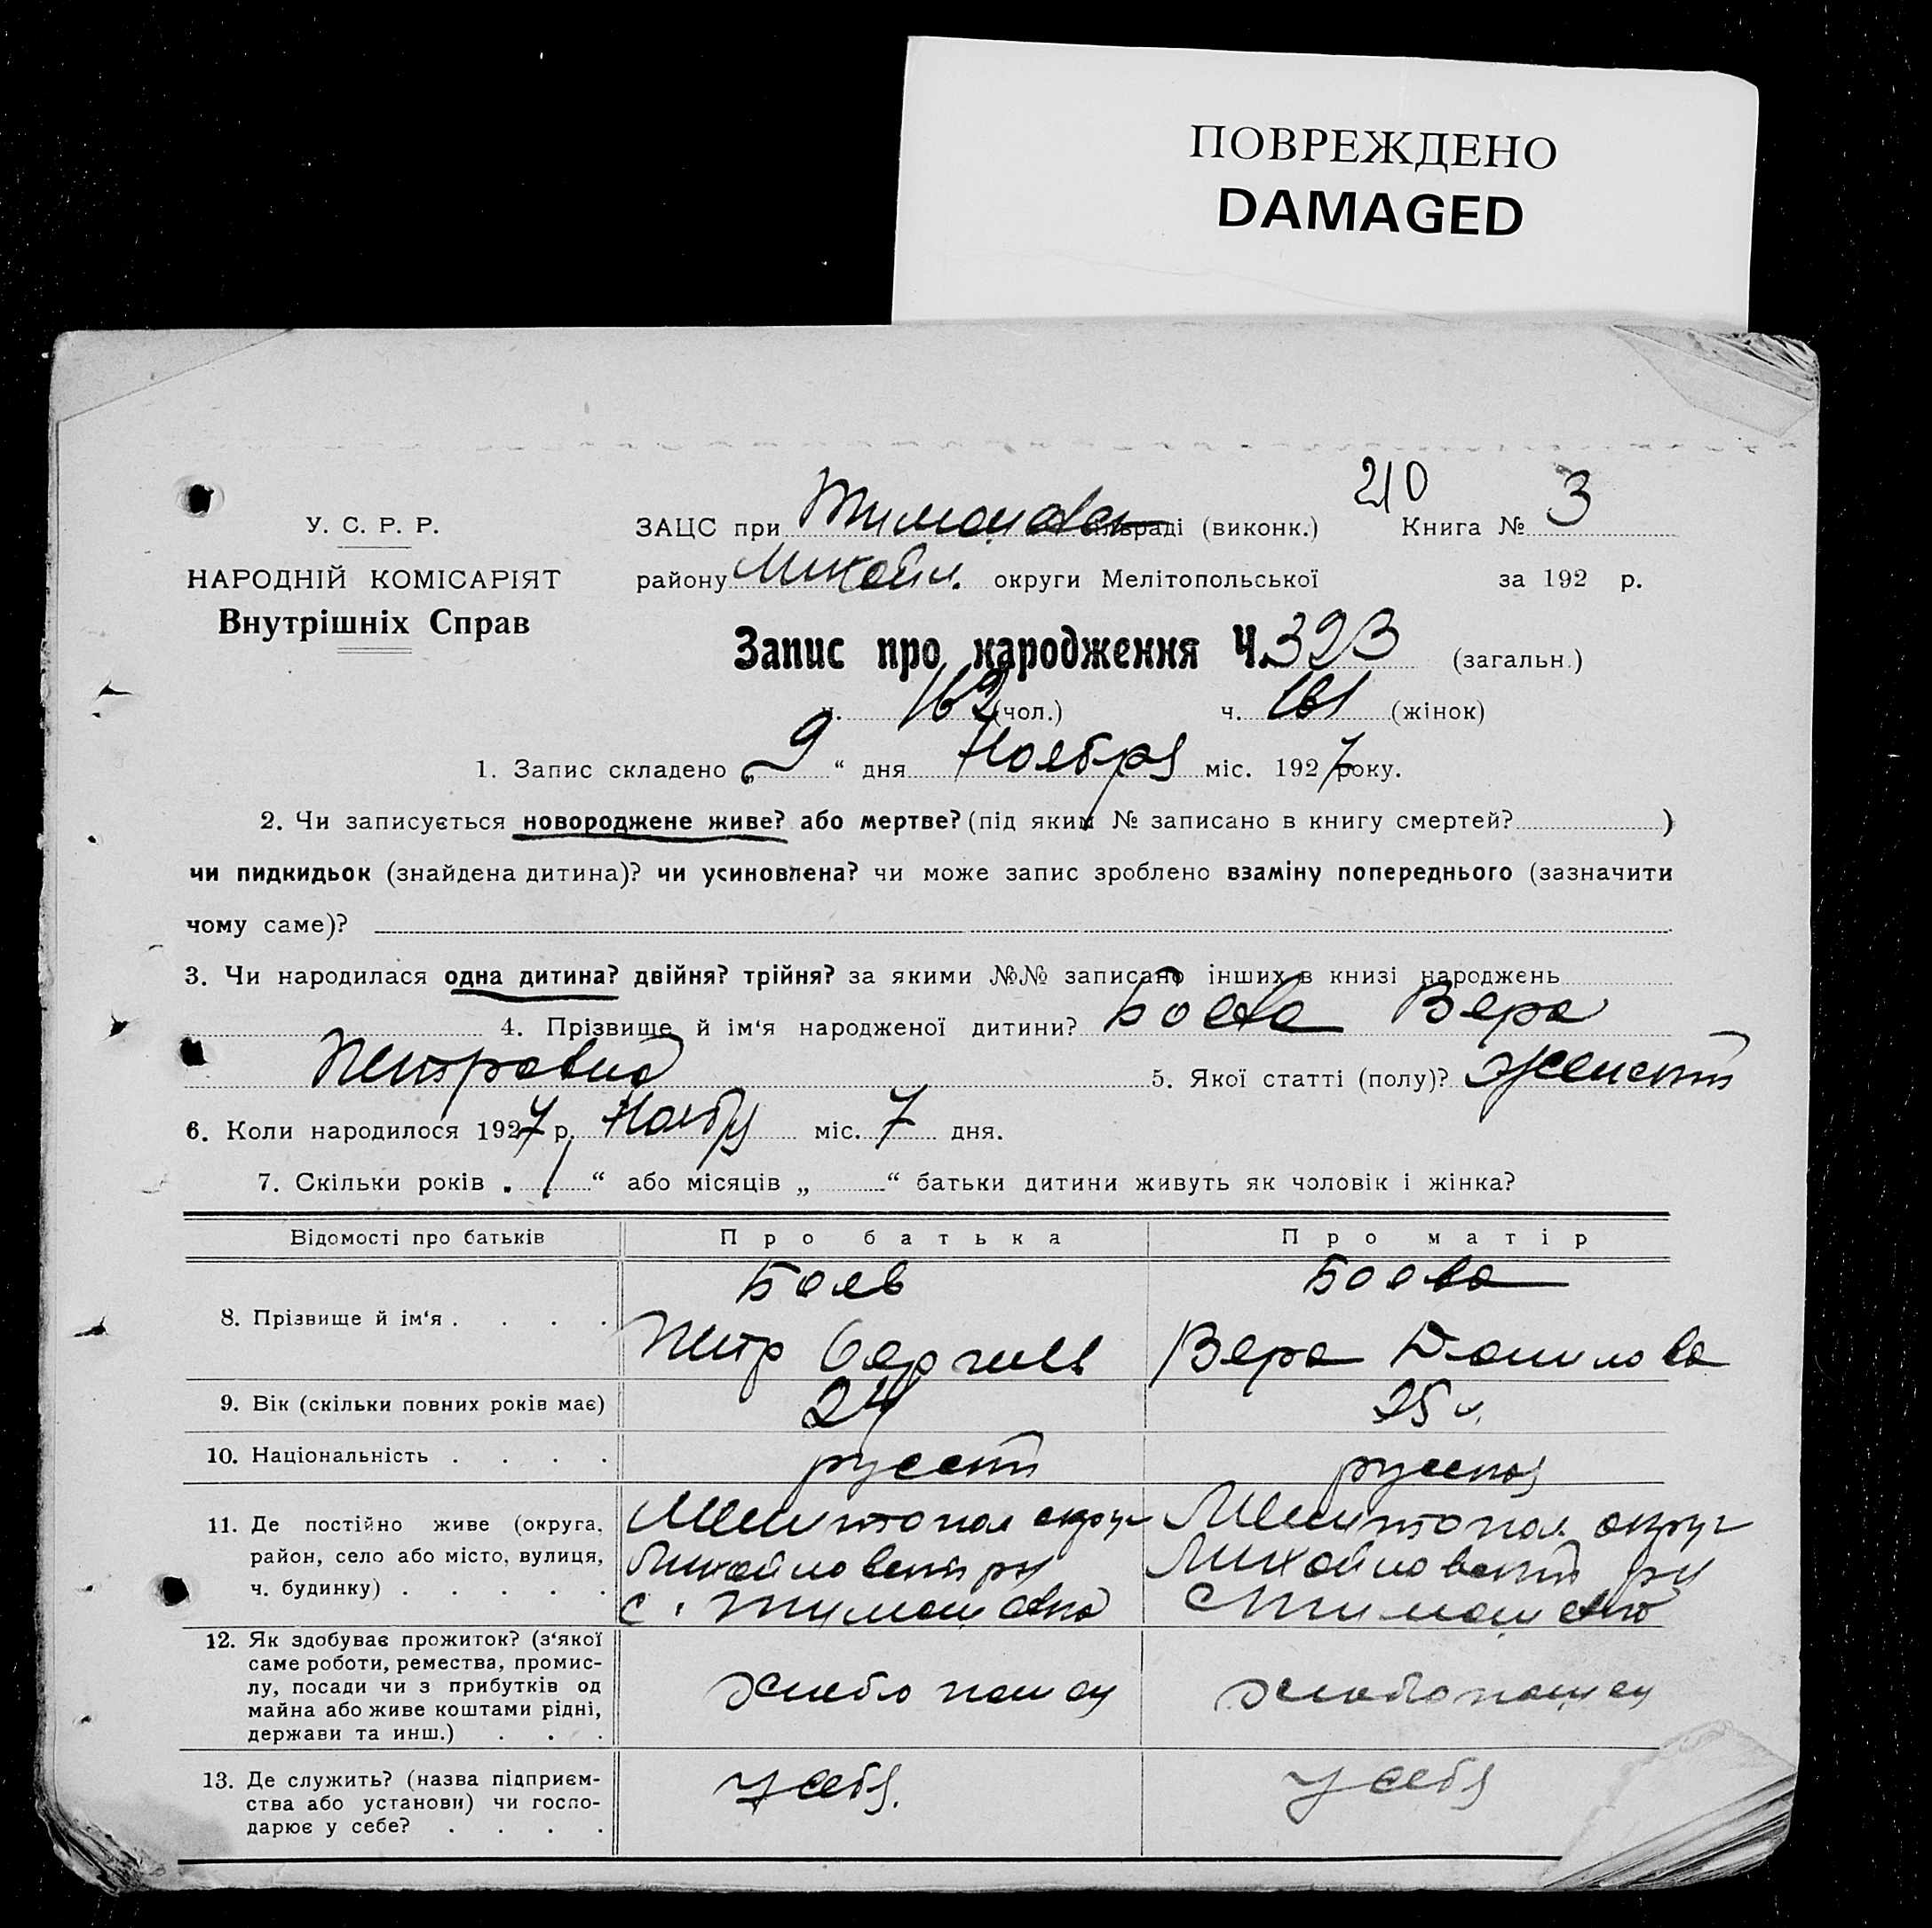 ПОВРЕЖДЕНО
DAMAGED
210
У. С. Р. Р.
ЗАЦС при Тимошовск сільраді (виконк.) Книга № 3
НАРОДНІЙ КОМІСАРІЯТ
району Михайл. округи Мелітопольської за 192 р.
Внутрішніх Справ
Запис про народження Ч. 323 (загальн.)
ч. 162 (чол.) ч. 161 (жінок)
1. Запис складено „ 9 “ дня Ноября міс. 1927 року.
2. Чи записується новороджене живе? або мертве? (під яким № записано в книгу смертей? )
чи пидкидьок (знайдена дитина)? чи усиновлена? чи може запис зроблено взаміну попереднього (зазначити
чому саме)?
3. Чи народилася одна дитина? двійня? трійня? за якими №№ записано інших в книзі народжень
4. Прізвище й ім‘я народженої дитини? Боева Вера
Петровна 5. Якої статті (полу)? женск
6. Коли народилося 1927 р. Ноябр міс. 7 дня.
7. Скільки років „ 1 “ або місяців „ “ батьки дитини живуть як чоловік і жінка?
Відомості про батьків Про батька Про матір
8. Прізвище й ім‘я . . . .
Боев
Петр Сергеев
Боева
Вера Данилова
9. Вік (скільки повних років має) 24 25 л.
10. Національність . . . . русск русская
11. Де постійно живе (округа,
район, село або місто, вулиця,
ч. будинку) . . . . .
Мелитопол округ
Михайловск рн
с. Тимошовка
Мелитопол округ
Михайловск рн
с Тимошовка
12. Як здобуває прожиток? (з‘якої
саме роботи, ремества, промис-
лу, посади чи з прибутків од
майна або живе коштами рідні,
держави та инш.) . . .
хлебопашец
хлебопашец
13. Де служить? (назва підприєм-
ства або установи) чи госпо-
дарює у себе? . . . .
у себя.
у себя